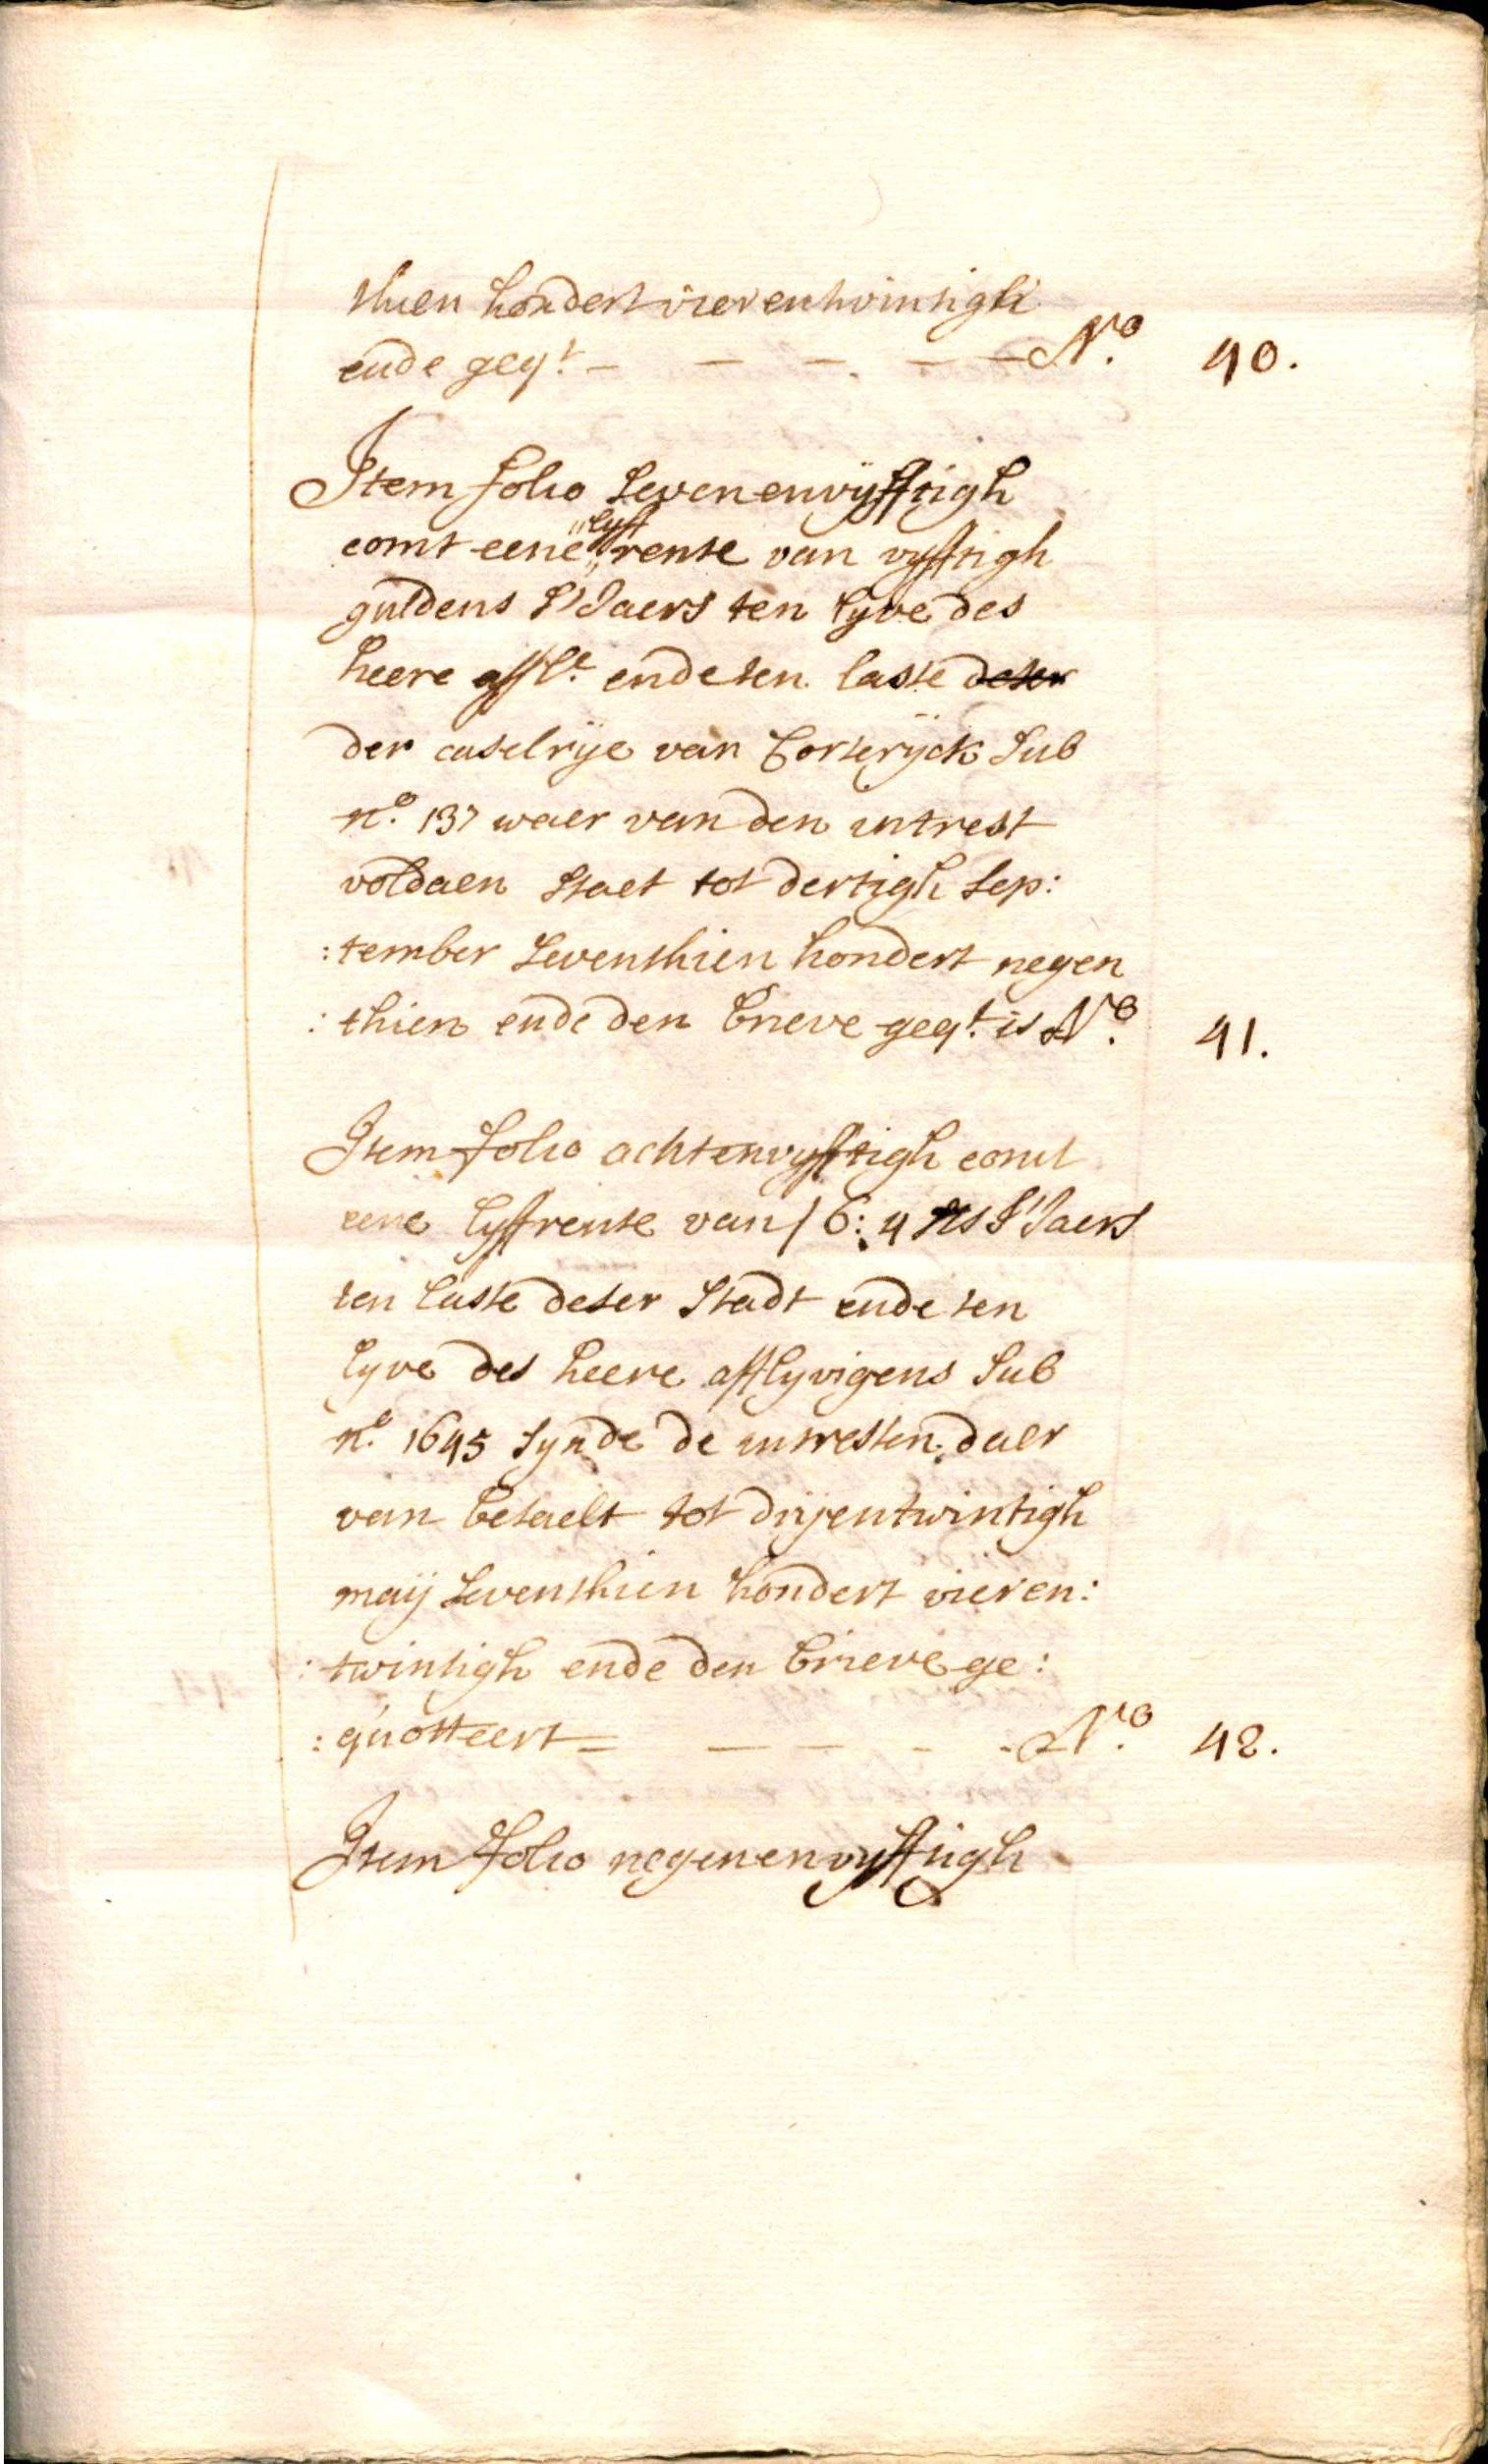 thien hondert vierentwintigh
ende geqt. - - - - - No. 40.
Item folio Sevenenvÿfftigh
comt eene "lyff" rente van vyfftigh
guldens S'Jaers ten lyve des
heere affle. ende ten laste deser
der caselrÿe van Corterÿck Sub
no. 137 waer van den intrest
voldaen Staet tot dertigh Sep:
:tember Seventhien hondert negen
:thien ende den brieve geqt. is No. 41.
Item folio achtenvyfftigh comt
eene lyffrente van 16: 4 S'Jaers
ten laste deser Stadt ende ten
lyve des heere afflyvigens Sub
no. 1645 Synde de intresten daer
van betaelt tot drÿentwintigh
maÿ Seventhien hondert vieren:
:twintigh ende den brieve ge:
:quotteert - - - - No. 42.
Item folio negenenvyfftigh